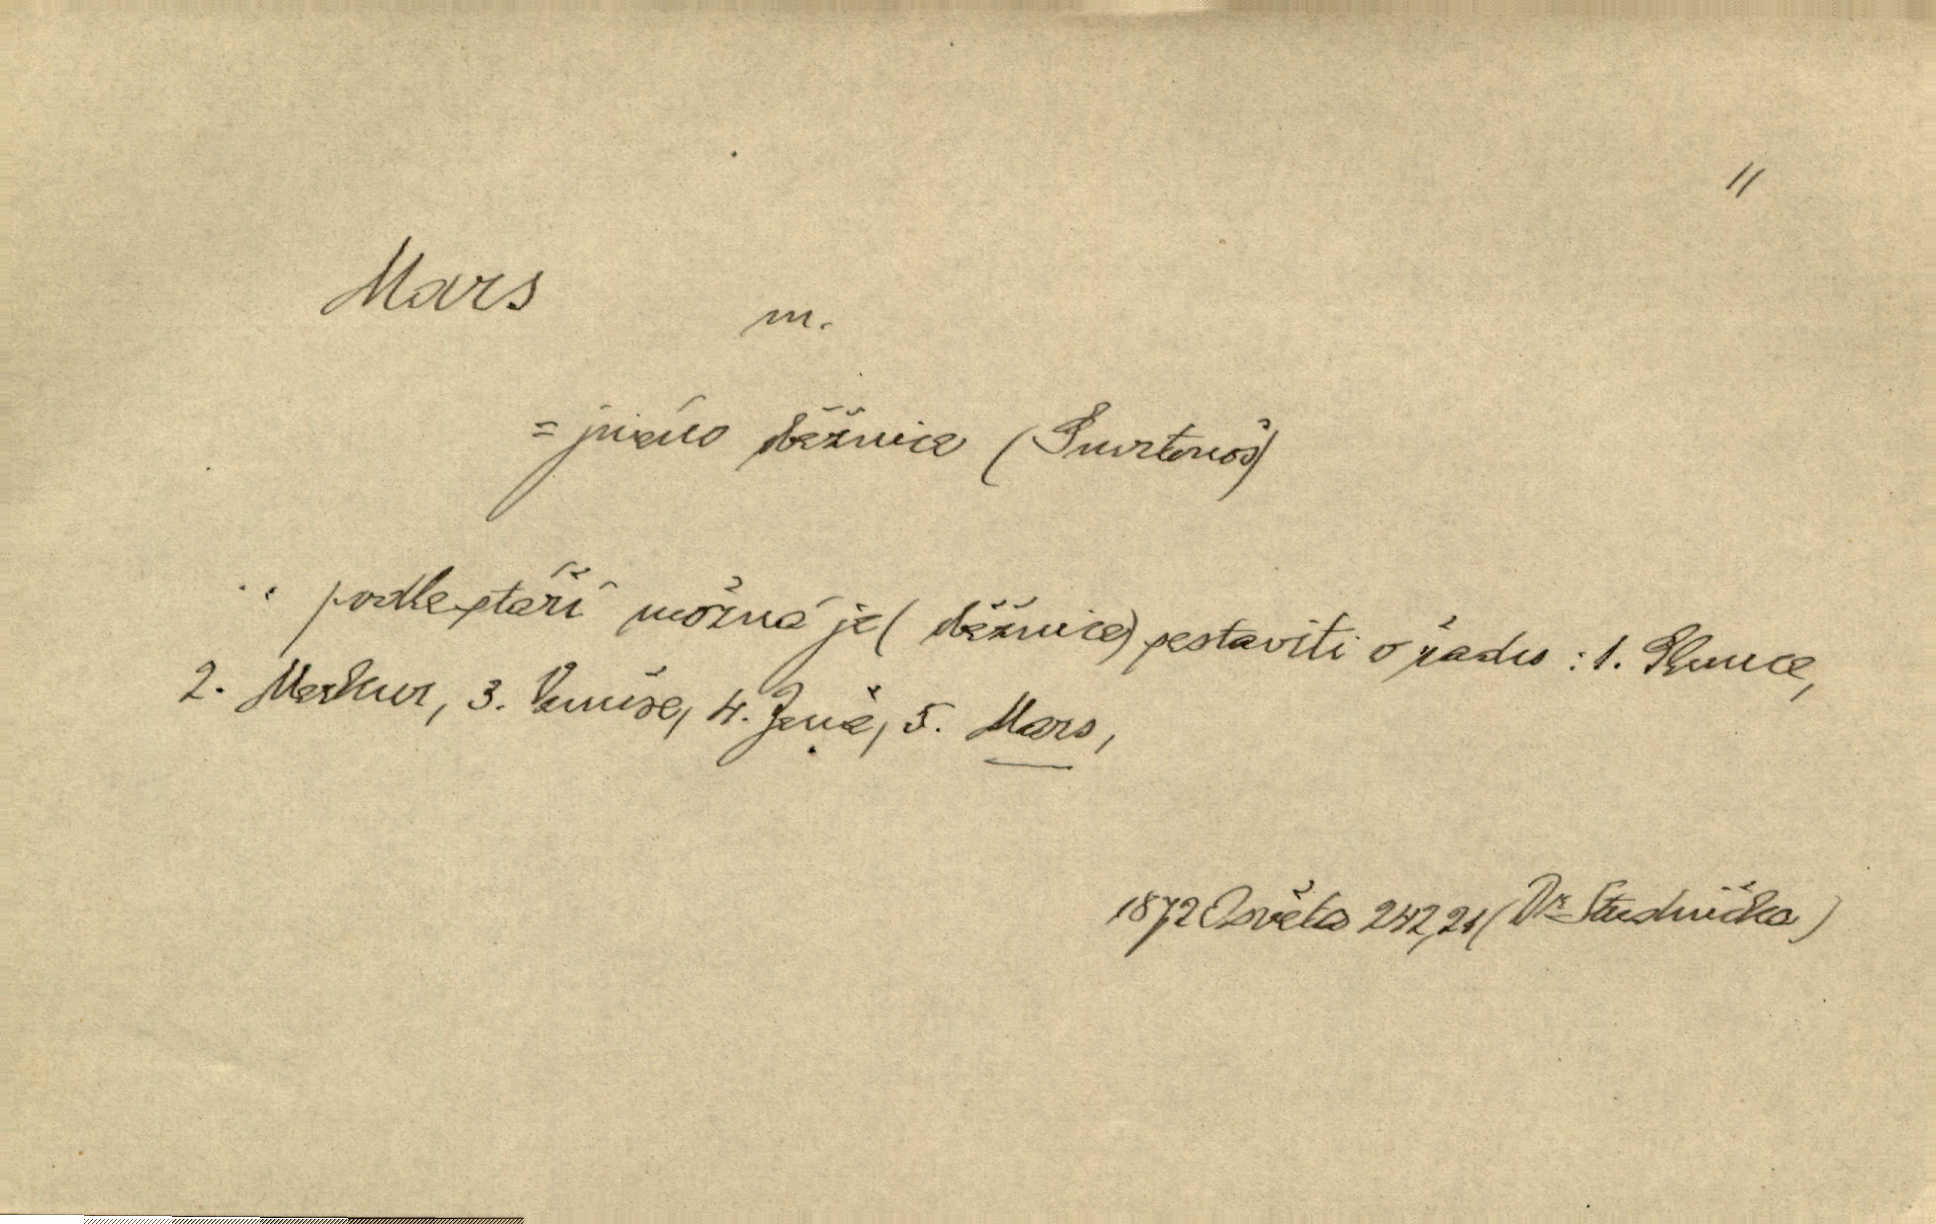 11
Mars m.
= jméno běžnice (Smrtonoš)
.. podle stáří možná je (běžnice) sestaviti v řadu : 1. Slunce,
2. Merkur, 3. Venuše, 4. Země, 5. Mars,
1872 Osvěta 242,21 (Dr Studnička)